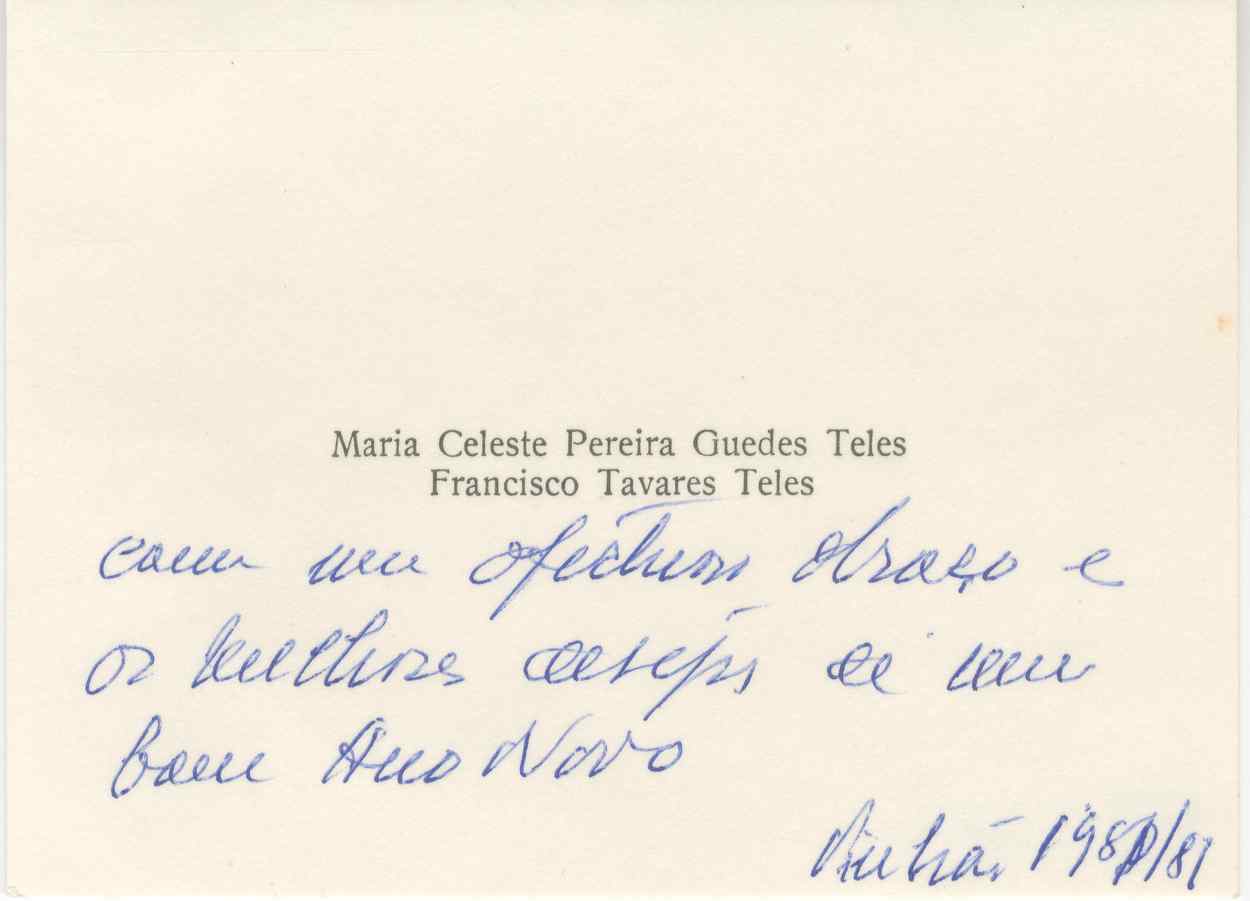 Maria Celeste Pereira Guedes Teles
Francisco Tavares Teles
com um afectuoso abraço e
os melhores desejos de um
bom Ano Novo
Pinhão, 1980/81